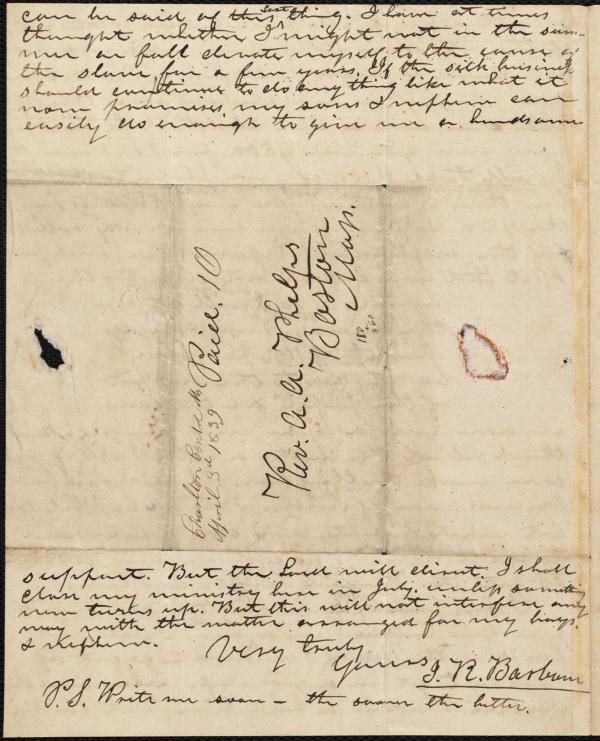 can be said of this last thing. I have at times
thought whether I might not in the sum-
mer or fall devote myself to the cause of
the slave, for a few years. If the silk business
should continue to do any thing like what it
now promises, my sons & nephew can
easily do enough to give me a handsome
Charlton Centre Ms
April 3d 1839
Paid. 10
Rev. A. A. Phelps
Boston
Mass.
support. But the Lord will direct. I shall
close my ministry here in July, unless something
new turns up. But this will not interfere any
way with the matter arranged for my boys
& nephew.
Very truly
Yours
J. R. Barbour
P.S. Write me soon – the sooner the better.